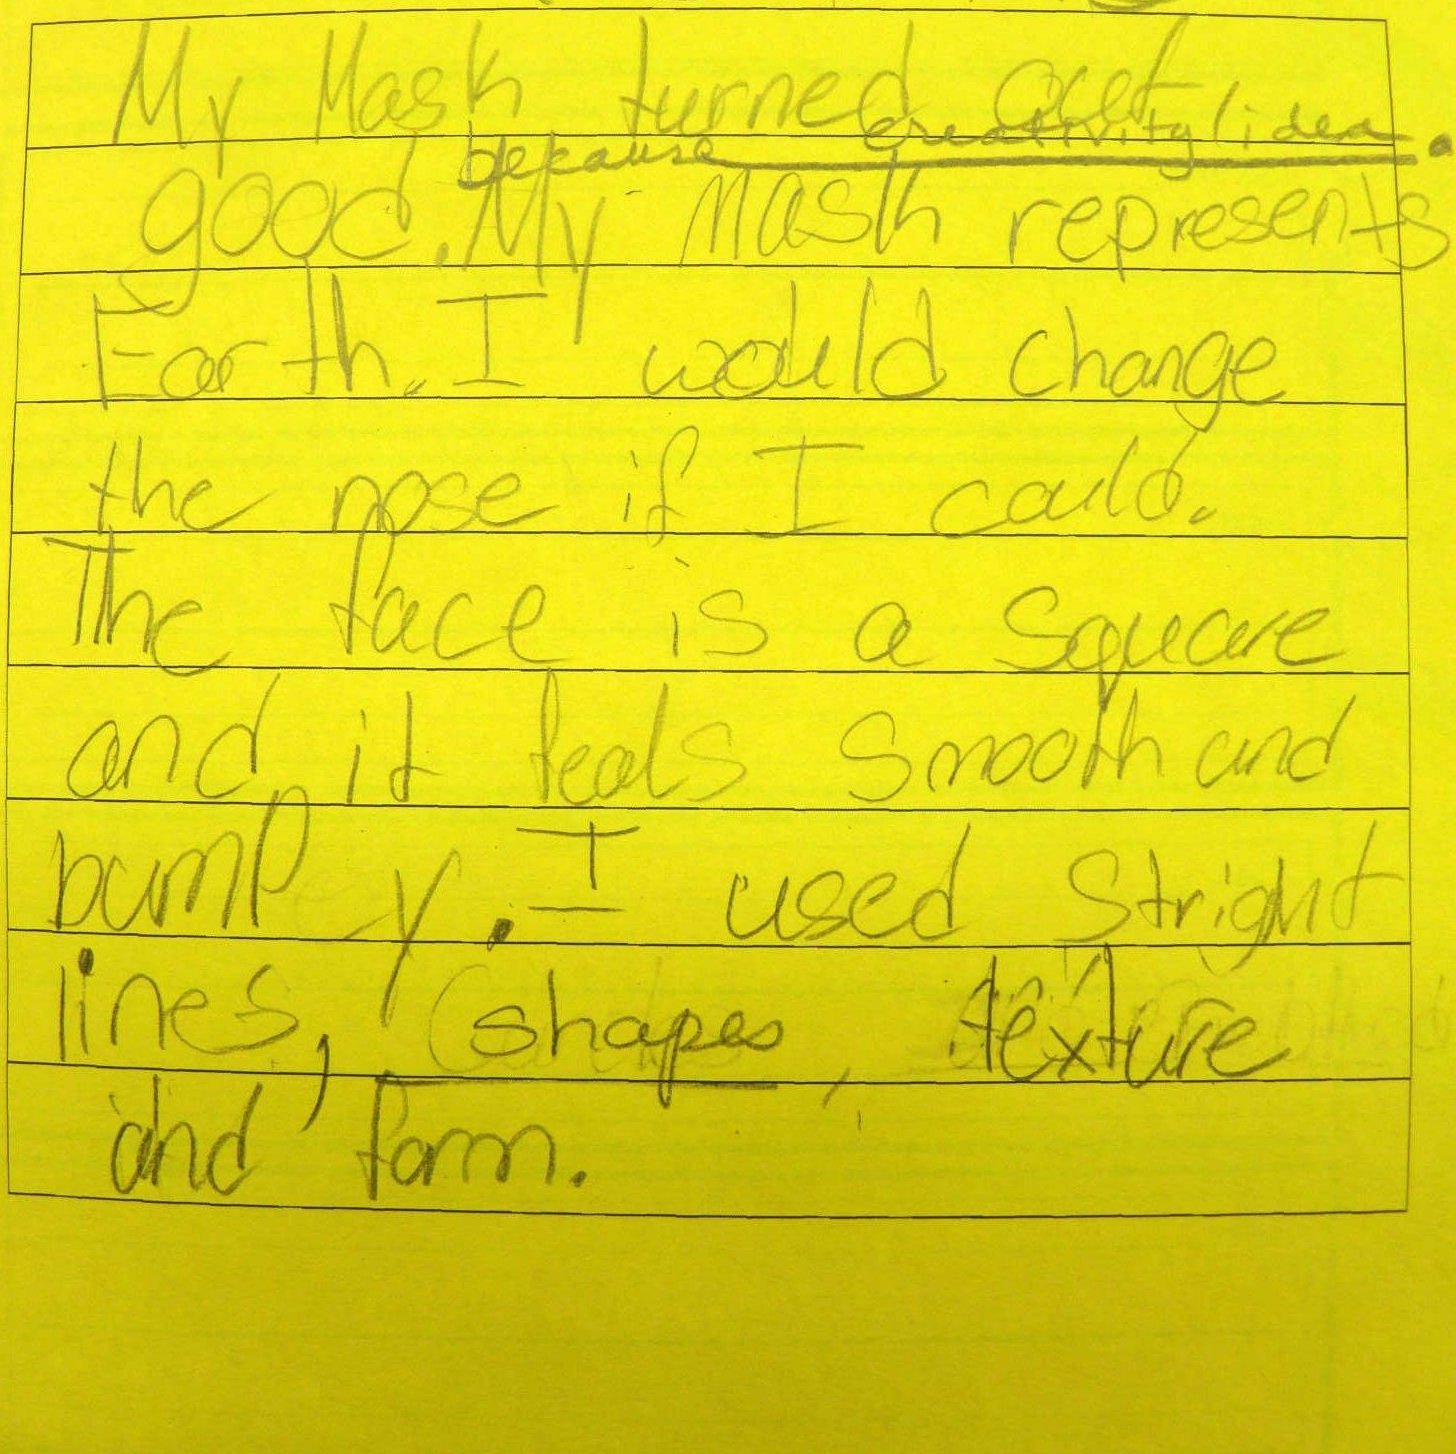 My Mask turned out
because creativity/idea.
good. My Mask represents
Earth. I would change
the nose if I could.
The face is a square
and it feals smooth and
bumpy. I used stright
lines, shapes, texture
and form.